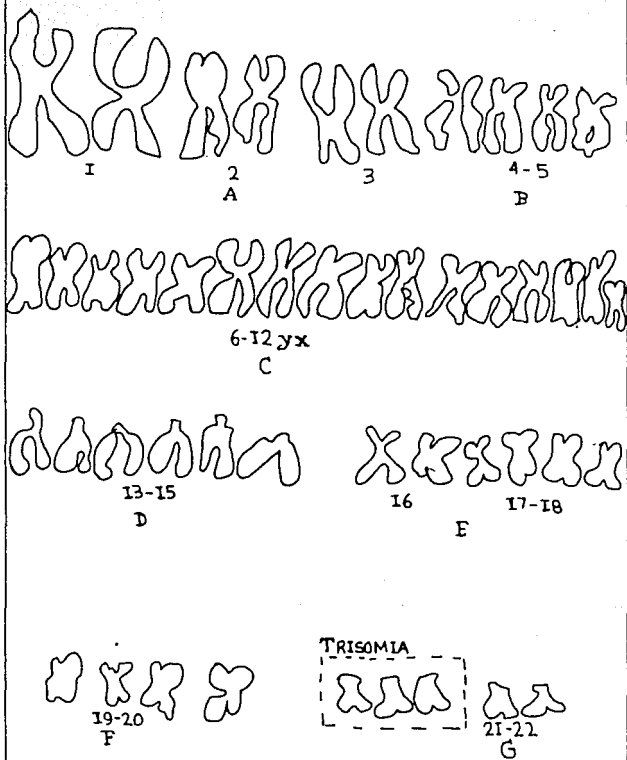 I 2 3 4-5
A B
6-I2 yx
C
I3-I5 I6 I7-I8
D E
TRISOMIA
I9-20 2I-22
F G